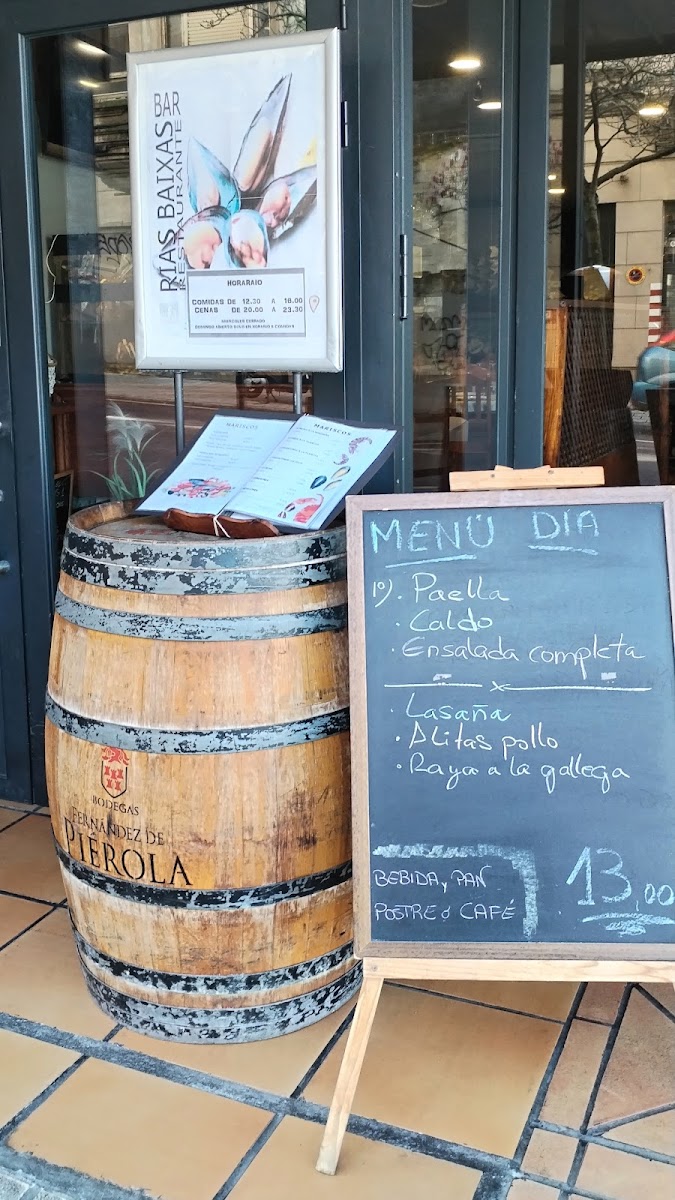 RIAS BAIXAS
BAR
RESTAURANTE
HORARAIO
COMIDAS DE 12.30 A 16.00
CENAS DE 20.00 A 23.30
MARISCOS
MARISCOS
BODEGAS
FERNÁNDEZ DE
PIÉROLA
MENÚ DIA
1º). Paella
· Caldo
· Ensalada completa
· Lasaña
· Alitas pollo
· Raya a la gallega
BEBIDA, PAN
POSTRE ó CAFÉ
13,00